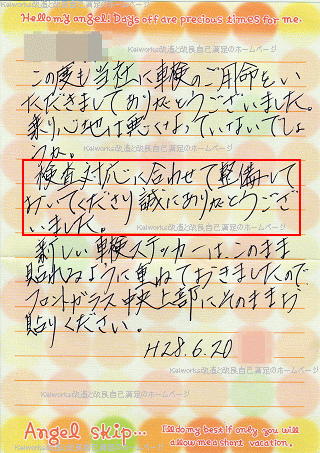 Hello my angel! Days off are precious times for me.
Kaiworks改造と改良自己満足のホームページ
この度も当社に車検のご用命をい
ただきましてありがとうございました。
乗り心地は悪くなっていないでしょ
うか。
Kaiworks改造と改良自己満足のホームページ
検査対応に合わせて整備して
おいてくださり誠にありがとうござ
いました。
新しい車検ステッカーは、このまま
貼れるように重ねておきましたので
フロントガラス中央上部にそのままお
貼りください。
H28.6.20
Kaiworks改造と改良自己満足のホームページ
Angel skip...
I'll do my best if only you will
allow me a short vacation.